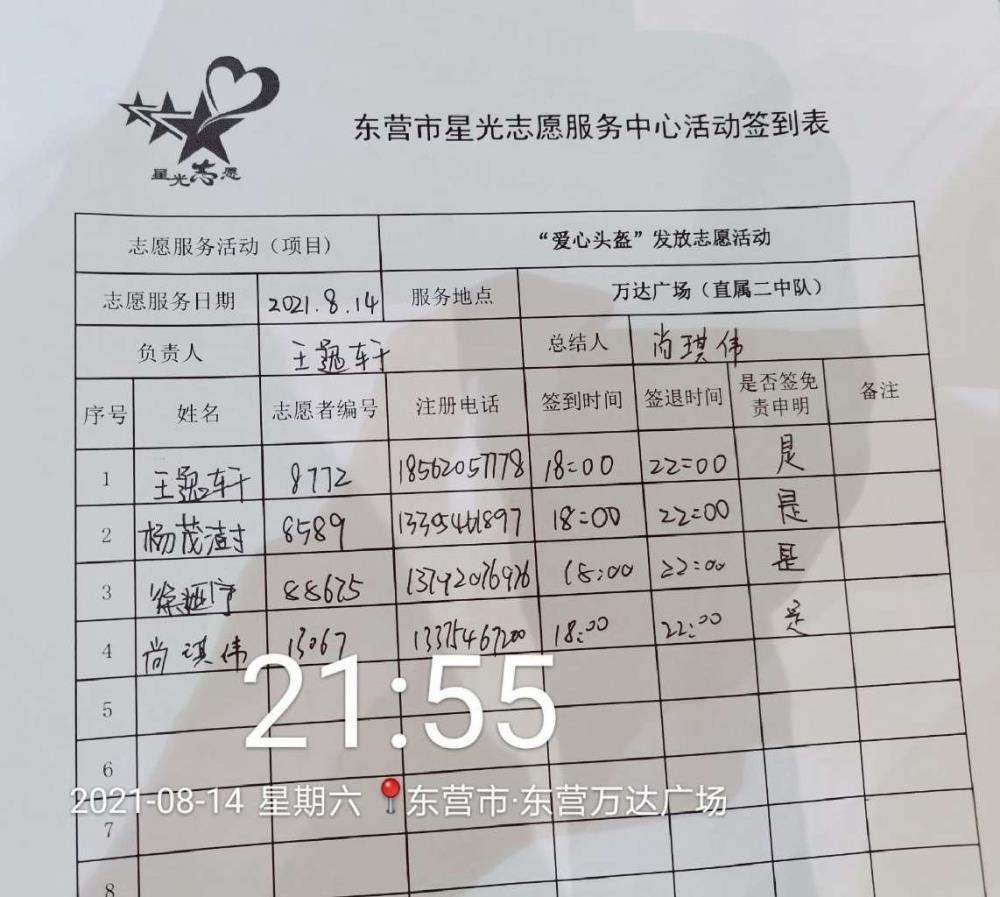 星光志愿
东营市星光志愿服务中心活动签到表
志愿服务活动（项目） “爱心头盔”发放志愿活动
志愿服务日期 2021.8.14 服务地点 万达广场（直属二中队）
负责人 王巍轩 总结人 尚琪伟
序号 姓名 志愿者编号 注册电话 签到时间 签退时间 是否签免责申明 备注
1 王巍轩 8772 18562057778 18:00 22:00 是
2 杨茂澍 8589 18:00 22:00 是
3 徐 88675 13792076976 18:00 22:00 是
4 尚琪伟 13067 13375467200 18:00 22:00 是
5
21:55
6
2021-08-14 星期六 东营市·东营万达广场
7
8